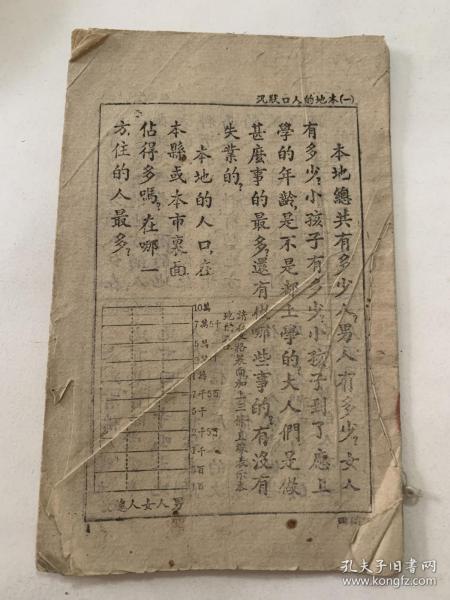 (一)本地的人口狀况
本地總共有多少人？男人有多少？女人
有多少？小孩子有多少？小孩子到了應上
學的年齡，是不是都上學的？大人們是做
甚麼事的最多？還有做哪些事的？有沒有
失業的？
本地的人口，在
本縣或本市裏面，
佔得多嗎？在哪一
方住的人最多？
10萬
7萬5千
5萬
1萬
7千5百
5千
1千
男人女人總
孔夫子旧书网
www.kongfz.com